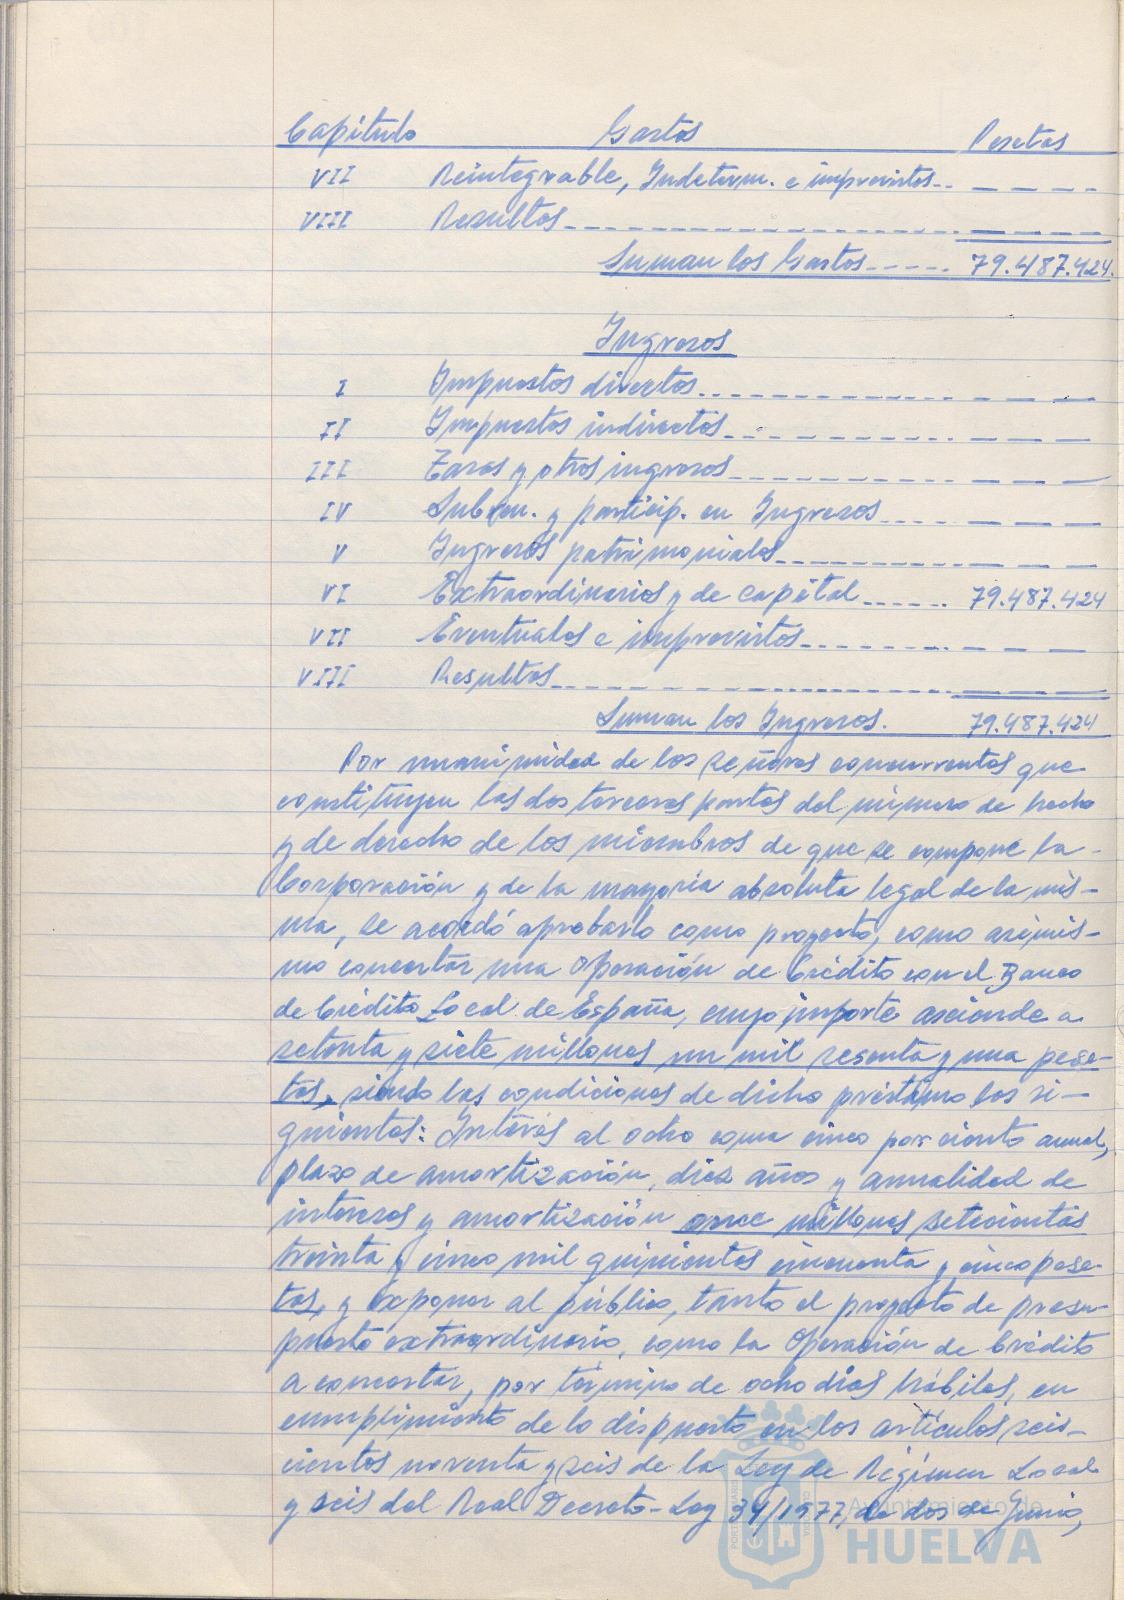 Capítulo Gastos Pesetas
VII Reintegrable, Indeterm. e imprevistos.. — — — -
VIII Resultas -------------------- — — — —
Suman los Gastos ----- 79.487.424.
Ingresos
I Impuestos directos.. ------------ — — —
II Impuestos indirectos ------------ — — —
III Tasas y otros ingresos ------------ — — —
IV Subven. y particip. en Ingresos .... — — —
V Ingresos patrimoniales ---------- — — —
VI Extraordinarios y de capital ...... 79.487.424
VII Eventuales e imprevistos ---------- — — —
VIII Resultas -------------------- — — —
Suman los Ingresos. 79.487.424
Por unanimidad de los señores concurrentes que
constituyen las dos terceras partes del número de hecho
y de derecho de los miembros de que se compone la
Corporación y de la mayoria absoluta legal de la mis-
ma, se acordó aprobarlo como proyecto, como asimis-
mo concertar una Operación de Crédito con el Banco
de Crédito Local de España, cuyo importe asciende a
setenta y siete millones un mil sesenta y una pese-
tas, siendo las condiciones de dicho préstamo las si-
guientes: Interés al ocho coma cinco por ciento anual,
plazo de amortización, diez años y anualidad de
intereses y amortización once millones setecientas
treinta y cinco mil quinientas cincuenta y cinco pese-
tas, y exponer al público, tanto el proyecto de presu-
puesto extraordinario, como la Operación de Crédito
a concertar, por término de ocho dias hábiles, en
cumplimiento de lo dispuesto en los artículos seis-
cientos noventa y seis de la Ley de Régimen Local
y seis del Real Decreto-Ley 34/1977, de dos de Junio,
Ayuntamiento de
HUELVA